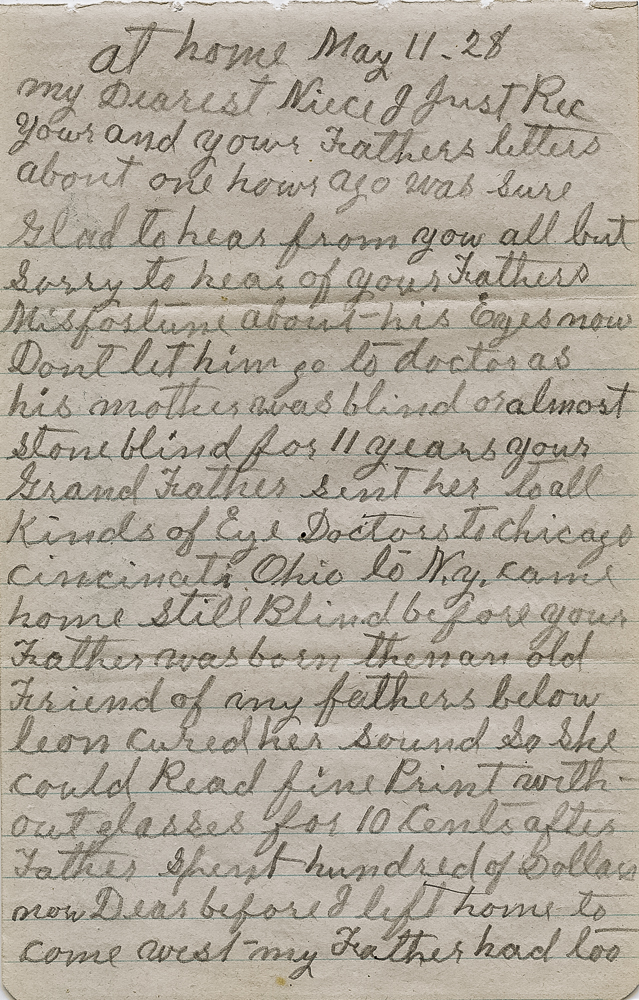 at home May 11-28
my Dearest Niece I Just Rec
your and your Fathers letters
about one hour ago was sure
Glad to hear from you all but
Sorry to hear of your Fathers
Misfortune about his Eyes now
Dont let him go to doctor as
his mother was blind or almost
stone blind for 11 years your
Grand Father sent her to all
Kinds of Eye Doctors to chicago
cincinati Ohio to N.y. came
home still Blind before your
Father was born then an old
Friend of my fathers below
leon cured her sound So She
could Read fine Print with-
out glasses for 10 Cents after
Father Spent hundred of Dollars
now Dear before I left home to
come west my Father had too